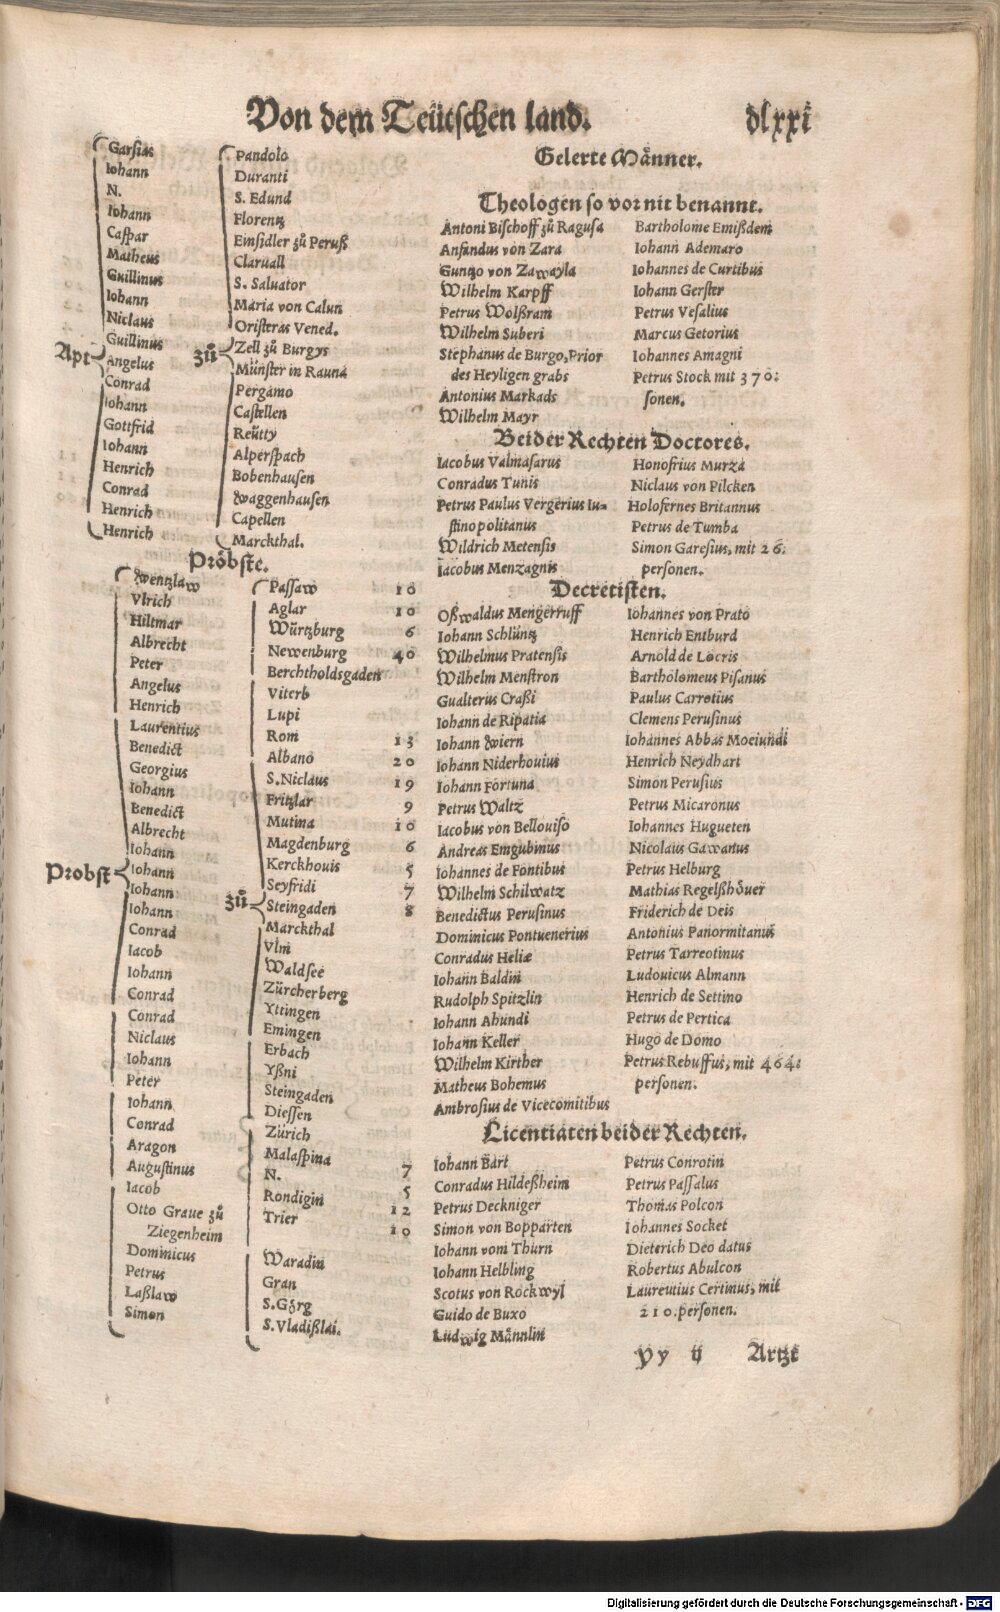 Von dem Teütschen land. dlxxi
Garsias
Iohann
N.
Iohann
Caspar
Matheus
Guillinus
Iohann
Niclaus
Guillinus
Apt
Angelus
Conrad
Iohann
Gottfrid
Iohann
Henrich
Conrad
Henrich
Henrich
zů
Pandolo
Duranti
S. Edund
Florentz
Einsidler zů Peruß
Claruall
S. Saluator
Maria von Calun
Oristeras Vened.
Zell zů Burgys
Münster in Rauna
Pergamo
Castellen
Reütty
Alperspach
Bobenhausen
Waggenhausen
Capellen
Marckthal.
Pröbste.
Wentzlaw
Vlrich
Hiltmar
Albrecht
Peter
Angelus
Henrich
Laurentius
Benedict
Georgius
Iohann
Benedict
Albrecht
Iohann
Probst
Iohann
Iohann
Iohann
Conrad
Iacob
Iohann
Conrad
Conrad
Niclaus
Iohann
Peter
Iohann
Conrad
Aragon
Augustinus
Iacob
Otto Graue zů
Ziegenheim
Dominicus
Petrus
Laßlaw
Simon
zů
Passaw 10
Aglar 10
Würtzburg 6
Newenburg 40
Berchtholdsgaden
Viterb
Lupi
Rom 13
Albano 20
S.Niclaus 19
Fritzlar 9
Mutina 10
Magdenburg 6
Kerckhouis 5
Seyfridi 7
Steingaden 8
Marckthal
Vlm
Waldsee
Zürcherberg
Yttingen
Emingen
Erbach
Yßni
Steingaden
Diessen
Zürich
Malaspina
N. 7
Rondigin 5
Trier 12
10
Waradin
Gran
S.Görg
S.Vladißlai.
Gelerte Männer.
Theologen so vor nit benannt.
Antoni Bischoff zů Ragusa
Ansandus von Zara
Guntzo von Zawayla
Wilhelm Karpff
Petrus Wolßram
Wilhelm Suberi
Stephanus de Burgo, Prior
des Heyligen grabs
Antonius Markads
Wilhelm Mayr
Bartholome Emißdem
Iohann Ademaro
Iohannes de Curtibus
Iohann Gerster
Petrus Vesalius
Marcus Getorius
Iohannes Amagni
Petrus Stock mit 370.
sonen.
Beider Rechten Doctores.
Iacobus Valmasarus
Conradus Tunis
Petrus Paulus Vergerius Iu=
stinopolitanus
Wildrich Metensis
Iacobus Menzagnis
Honofrius Murza
Niclaus von Pilcken
Holofernes Britannus
Petrus de Tumba
Simon Garesius, mit 26.
personen.
Decretisten.
Oßwaldus Mengerruff
Iohann Schlüntz
Wilhelmus Pratensis
Wilhelm Menstron
Gualterius Craßi
Iohann de Ripatia
Iohann Wiern
Iohann Niderhouius
Iohann Fortuna
Petrus Waltz
Iacobus von Bellouiso
Andreas Emgubinus
Iohannes de Fontibus
Wilhelm Schilwatz
Benedictus Perusinus
Dominicus Pontuenerius
Conradus Heliæ
Iohann Baldin
Rudolph Spitzlin
Iohann Abundi
Iohann Keller
Wilhelm Kirther
Matheus Bohemus
Ambrosius de Vicecomitibus
Iohannes von Prato
Henrich Entburd
Arnold de Locris
Bartholomeus Pisanus
Paulus Carrotius
Clemens Perusinus
Iohannes Abbas Moeiundi
Henrich Neydhart
Simon Perusius
Petrus Micaronus
Iohannes Hugueten
Nicolaus Gawarius
Petrus Helburg
Mathias Regelßhöuer
Friderich de Deis
Antonius Panormitanus
Petrus Tarreotinus
Ludouicus Almann
Henrich de Settino
Petrus de Pertica
Hugo de Domo
Petrus Rebuffus, mit 464.
personen.
Licentiaten beider Rechten.
Iohann Bart
Conradus Hildeßheim
Petrus Deckniger
Simon von Bopparten
Iohann vom Thurn
Iohann Helbling
Scotus von Rockwyl
Guido de Buxo
Ludwig Männlin
Petrus Conrotin
Petrus Passalus
Thomas Polcon
Iohannes Socket
Dieterich Deo datus
Robertus Abulcon
Laurentius Cerinus, mit
210. personen.
Yy ij Artzt
Digitalisierung gefördert durch die Deutsche Forschungsgemeinschaft - DFG